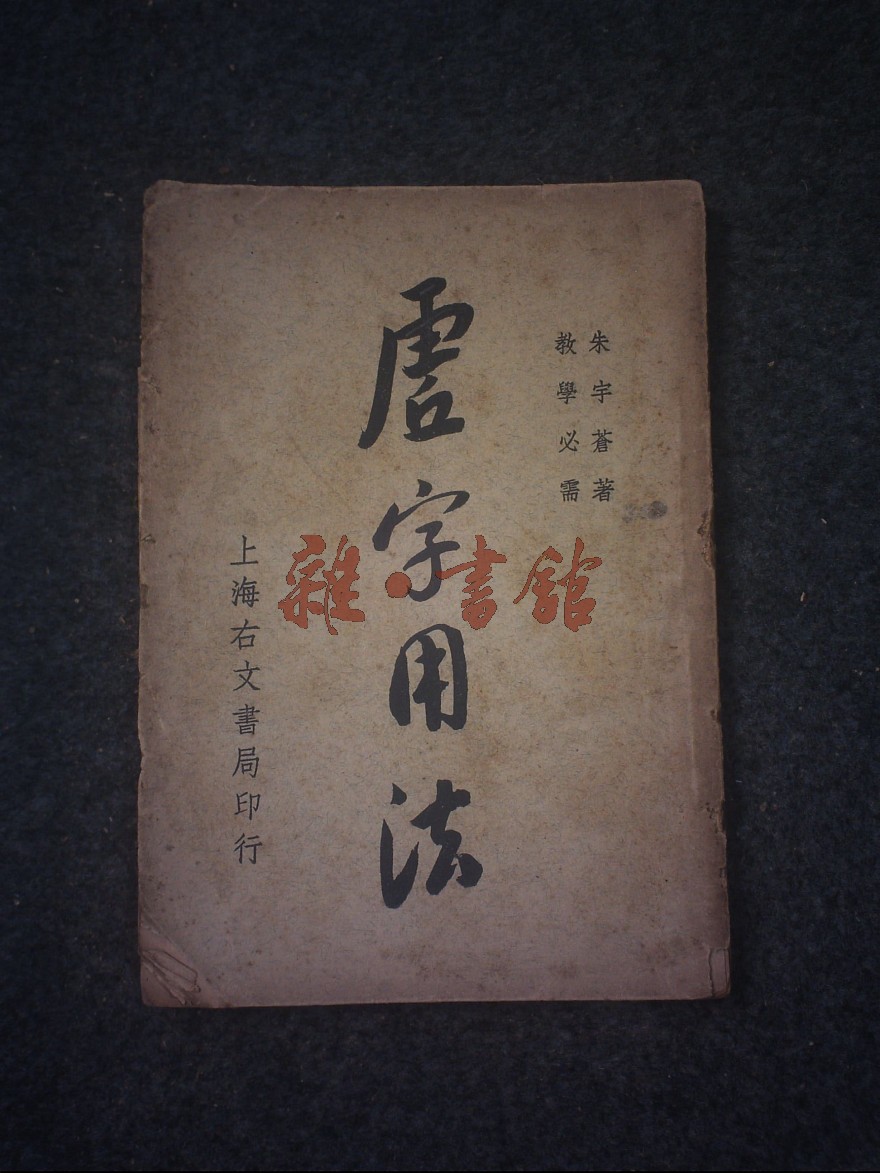 朱宇蒼著
教學必需
虚字用法
上海右文書局印行
雜·書館